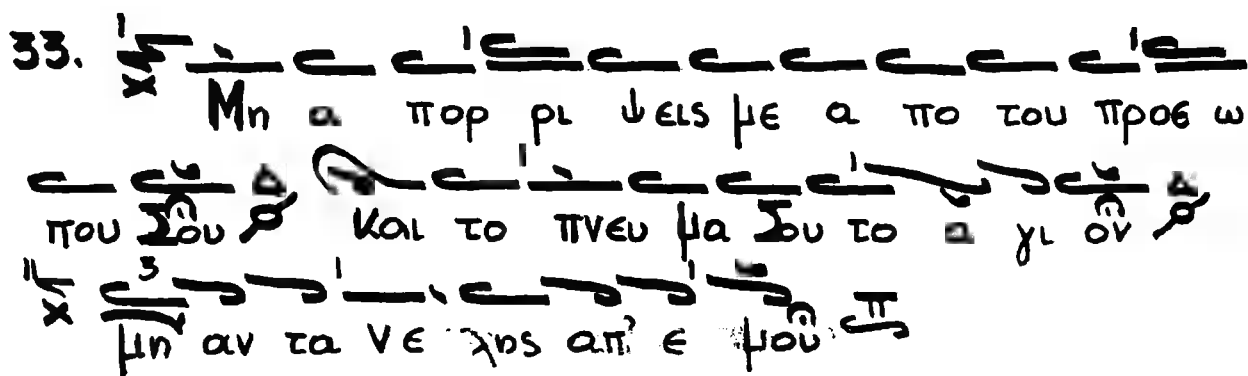 33. Μη α πορ ρι ψεις με α πο του προσ ω
που Σου Και το πνευ μα Σου το α γι ον
μη αν τα νε λης απ' ε μου